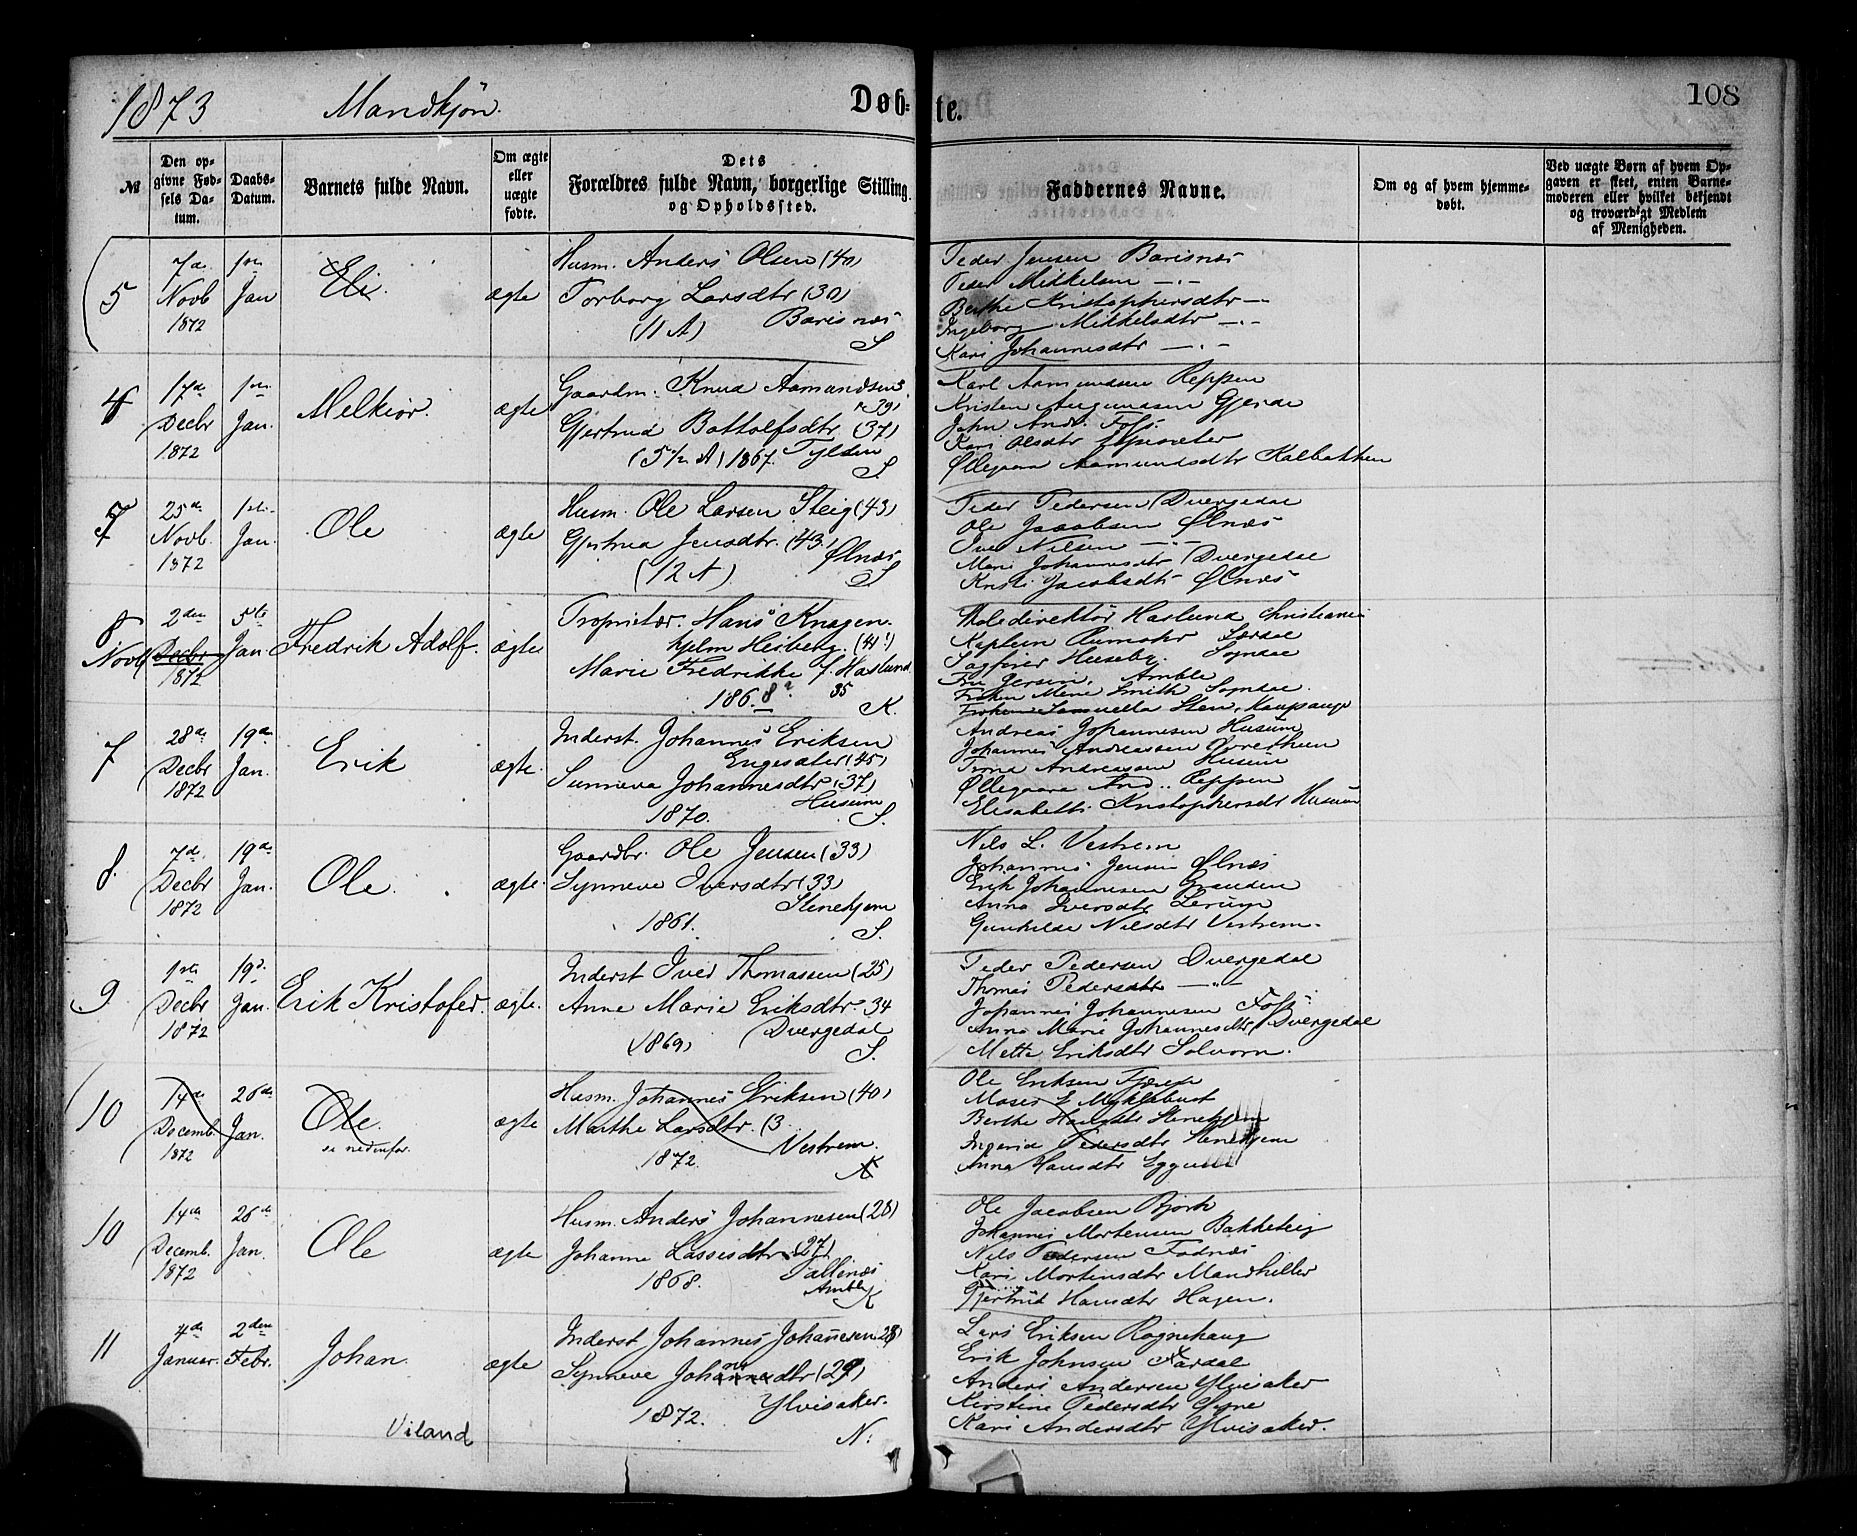 1873 Mandkjøn. Døb-
te. 108
№
Den op-
givne Fød-
sels Da-
tum.
Daabs-
Datum.
Barnets fulde Navn.
Om ægte
eller
uægte
fødte.
Dets
Forældres fulde Navn, borgerlige Stilling
og Opholdssted.
Faddernes Navne.
Om og af hvem hjemme-
døbt.
Ved uægte Børn af hvem Op-
gaven er skeet, enten Barne-
moderen eller hvilket bekjendt
og troværdigt Medlem
af Menigheden.
5
7de
Novb
1872
1ste
Jan
Eli.
ægte
Husm. Anders Olsen (40)
Torborg Larsdtr (30)
(11 A) Barisnæs
S
Peder Jensen Barisnæs
Peder Mikkelsen —"—
Berthe Kristophersdtr —
Ingeborg Mikkelsdtr —"—
Kari Johannesdtr —"—
17de
Decbr
1872
1ste
Jan.
Melkior.
ægte
Gaardm. Knud Aamundsen
(39)
Gjertrud Bottolfsdtr (37)
(5½ A) 1867. Tylden
S
Karl Aamundsen Reppen
Kristen Augundsen Gjerde
John And. Foss.
Kari Olsdtr
Øllegaard Aamundsdtr Kalbakken
7
25de
Novb.
1872
1ste
Jan.
Ole
ægte
Husm. Ole Larsen Steig (43)
Gjertrud Jensdtr. (43.)
(12 A) Ølnæs
S
Peder Pedersen Dvergedal
Ole Jacobsen Ølnæs
Iver Nilsen —"—
Mari Johannesdtr Dvergedal
Kristi Jacobsdtr Ølnæs
8
2den
Novb Decbr
1872
5te
Jan
Fredrik Adolf.
ægte
Proprietær. Hans Knagen-
hjelm Heiberg. (41)
Marie Fredrikke f. Haslund
1868? 35
K.
Haslund Christiania
Kaptein Rumohr Lærdal
Sagfører Huseby. Sogndal
Fru Gersen. Amble
Frøken Mene Smith Sogndal.
Frøken Samuella Sten, Kaupanger
7
28de
Decbr
1872
19de
Jan.
Erik
ægte.
Inderst. Johannes Eriksen
Engesæter (45)
Sunneva Johannesdtr (37)
1870. Husum
S.
Andreas Johannesen Husum
Johannes Andreassen
Andreassen Husum
Øllegaard And.. Reppen
Elisabeth Kristophersdtr Husum
8.
7de.
Decbr
1872
19de
Jan.
Ole.
ægte.
Gaardbr. Ole Jensen (33)
Synneve Iversdtr (33)
Stenehjem
1861.
S.
Nils L. Vestrem
Johannes Jensen Ølnæs
Erik Johannesen Granden
Anna Iversdtr Lerum
Gunhilde Nilsdtr Vestrem.
9.
1ste
Decbr
1872
19d.
Jan.
Erik Kristofer.
ægte.
Inderst Iver Thomassen (25)
Anne Marie Eriksdtr. 34
(1869) Dvergedal
S.
Peder Pedersen Dvergedal
Thomas Pedersdtr —"—
Johannes Johannesen Foss
Anna Marie Johannesdtr Dvergedal
Mette Eriksdtr Solvorn.
10
14de
Decemb.
1872
26de
Jan.
Ole.
se nedenfor.
ægte
Husm. Johannes Eriksen (40)
Marthe Larsdtr. (3
1872. Vestrem.
K
Ole Eriksen
Moses E Myklebust
Berthe Hansdtr Stenehjem
Ingerid Pedersdtr Stenehjem
Anna Hansdtr
10
14de
Decemb.
1872
26de
Jan.
Ole
ægte
Husm. Anders Johannesen (28)
Johanne Lassesdtr (27)
1868. Pallenæs
Amble
K
Ole Jacobsen Bjork
Johannes Mortensen Bakketeig
Nils Pedersen Fodnæs
Kari Mortinsdtr Mandheller
Gjertrud Hansdtr Hagen.
11
4de
Januar.
2den
Febr.
Johan.
ægte
Inderst Johannes Johanesen 28)
Synneve Johannesdtr (29)
1872. Ylvisaker.
N:
Lars Eriksen Rognehaug
Erik Johnsen Aardal
Anders Andersen Ylvisaker
Kirstine Pedersdtr
Kari Andersdtr Ylvisaker.
Viland